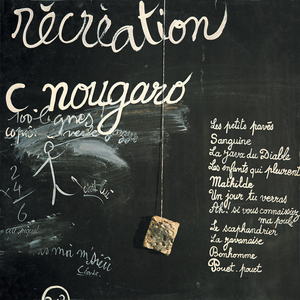 récréation
c nougaro
100 lignes
copié
c'est lui
2
4
6
Les petits pavés
Sanguine
La java du Diable
Les enfants qui pleurent
Mathilde
Un jour tu verras
Ah! si vous connaissiez
ma poule
Le scaphandrier
La javanaise
Bonhomme
Pouet. pouet